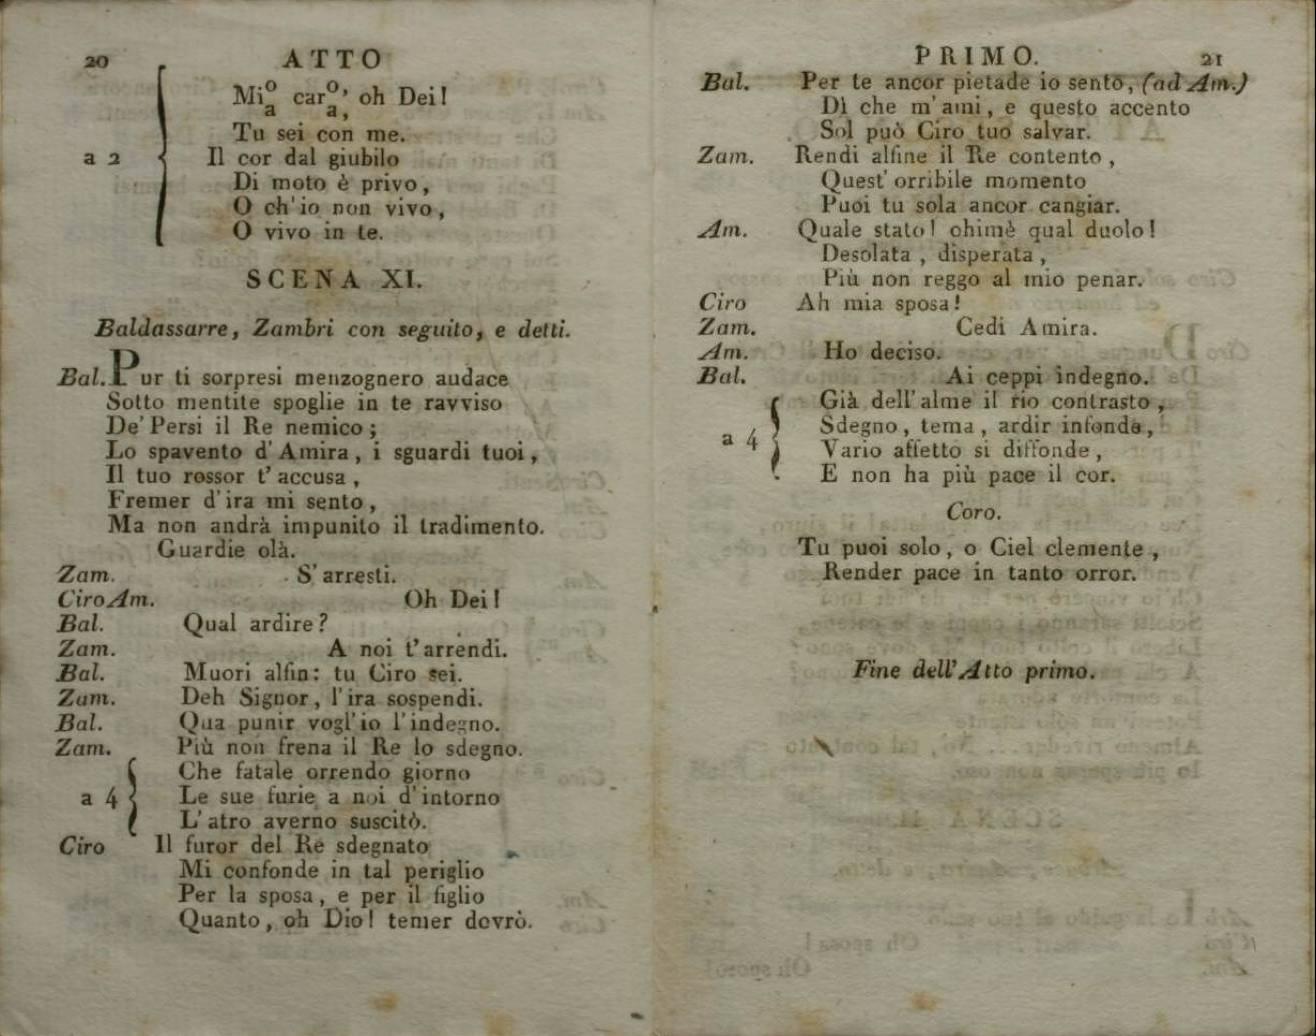 20 ATTO
Mi°a car°a, oh Dei!
Tu sei con me.
a 2 Il cor dal giubilo
Di moto è privo,
O ch'io non vivo,
O vivo in te.
SCENA XI.
Baldassarre, Zambri con seguito, e detti.
Bal. Pur ti sorpresi menzognero audace
Sotto mentite spoglie in te ravviso
De' Persi il Re nemico;
Lo spavento d'Amira, i sguardi tuoi,
Il tuo rossor t'accusa,
Fremer d'ira mi sento,
Ma non andrà impunito il tradimento.
Guardie olà.
Zam. S'arresti.
Ciro Am. Oh Dei!
Bal. Qual ardire?
Zam. A noi t'arrendi.
Bal. Muori alfin: tu Ciro sei.
Zam. Deh Signor, l'ira sospendi.
Bal. Qua punir vogl'io l'indegno.
Zam. Più non frena il Re lo sdegno.
Che fatale orrendo giorno
a 4 Le sue furie a noi d'intorno
L'atro averno suscitò.
Ciro Il furor del Re sdegnato
Mi confonde in tal periglio
Per la sposa, e per il figlio
Quanto, oh Dio! temer dovrò.
PRIMO. 21
Bal. Per te ancor pietade io sento, (ad Am.)
Dì che m'ami, e questo accento
Sol può Ciro tuo salvar.
Zam. Rendi alfine il Re contento,
Quest' orribile momento
Puoi tu sola ancor cangiar.
Am. Quale stato! ohimè qual duolo!
Desolata, disperata,
Più non reggo al mio penar.
Ciro Ah mia sposa!
Zam. Cedi Amira.
Am. Ho deciso.
Bal. Ai ceppi indegno.
Già dell'alme il rio contrasto,
a 4 Sdegno, tema, ardir infonde,
Vario affetto si diffonde,
E non ha più pace il cor.
Coro.
Tu puoi solo, o Ciel clemente,
Render pace in tanto orror.
Fine dell'Atto primo.